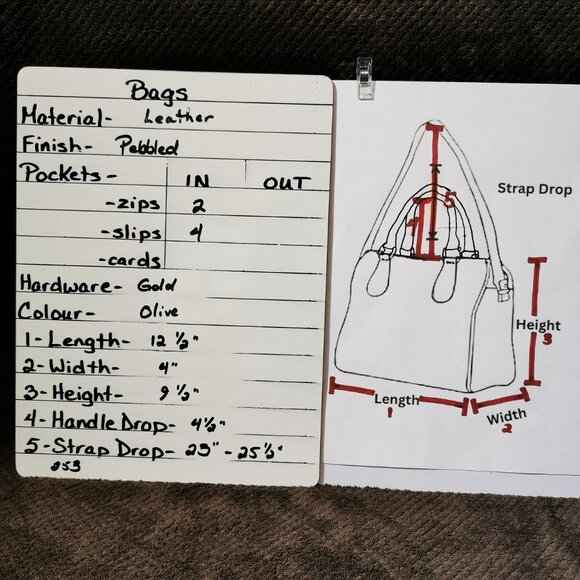 Bags
Material- Leather
Finish- Pebbled
Pockets- IN OUT
-zips 2
-slips 4
-cards
Hardware- Gold
Colour- Olive
1-Length- 12 ½"
2-Width- 4"
3-Height- 9 ½"
4-Handle Drop- 4½"
5-Strap Drop- 23" - 25½"
253
Strap Drop
5
4
Height
3
Length
1
Width
2